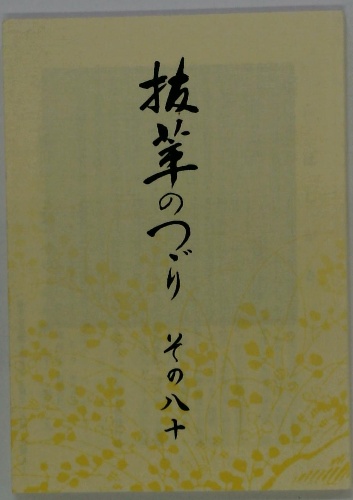 抜萃のつゞり その八十